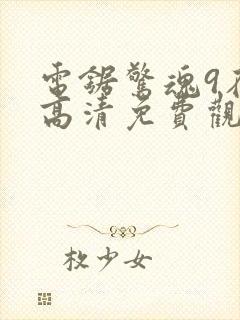 電鋸驚魂9
高清免費觀
枚少女